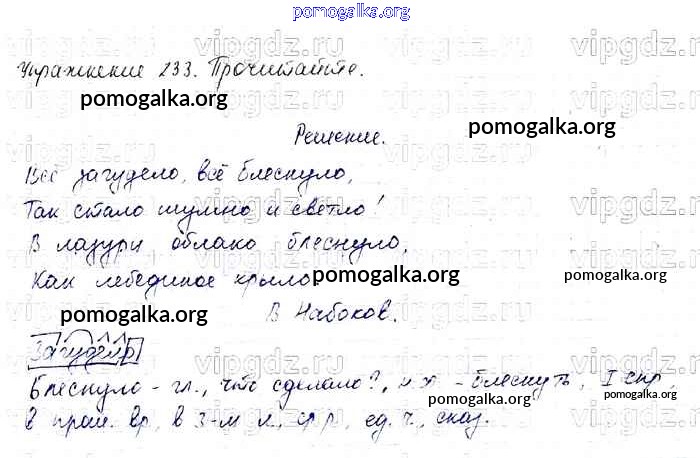 pomogalka.org
Упражнение 233. Прочитайте.
pomogalka.org
Решение.
pomogalka.org
Всё загудело, всё блеснуло,
Так стало шумно и светло!
В лазури облако блеснуло,
Как лебединое крыло.
pomogalka.org
pomogalka.org
В Набоков.
pomogalka.org
Загудело
Блеснуло - гл., что сделало?, н. ф. - блеснуть, I спр,
pomogalka.org
в прош. вр, в 3-м л, ср р, ед. ч, сказ.
pomogalka.org
vipgdz.ru vipgdz.ru vipgdz.ru